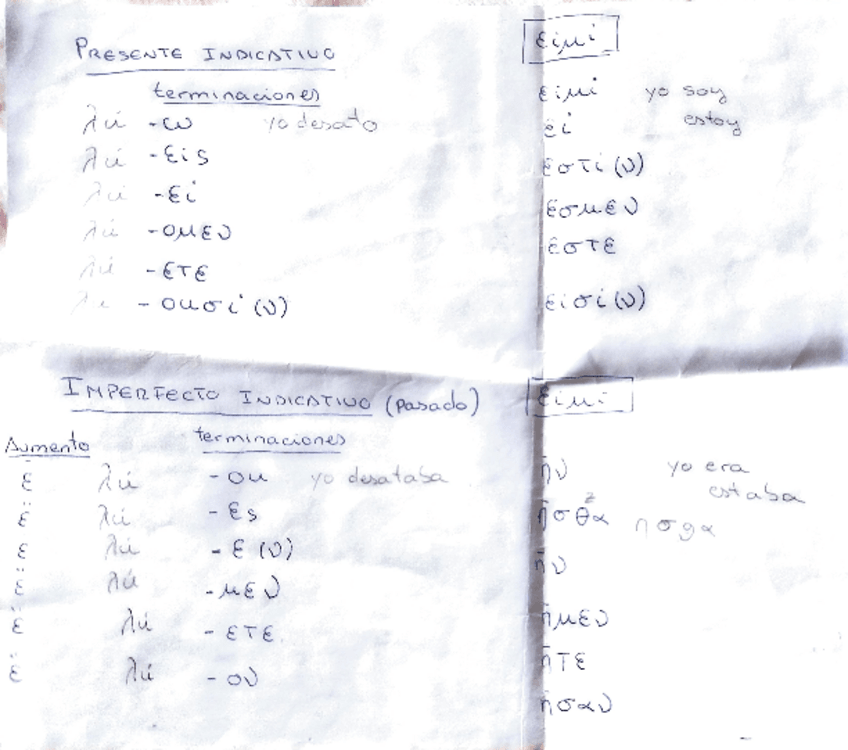 PRESENTE INDICATIVO
terminaciones
λύ -ω yo desato
λύ -εις
λύ -ει
λύ -ομεν
λύ -ετε
λύ -ουσι (ν)
ειμι
ειμι yo soy
ει estoy
εστι (ν)
εσμεν
εστε
εισι (ν)
IMPERFECTO INDICATIVO (pasado)
Aumento terminaciones
ἐ λύ -ον yo desataba
ἐ λύ -ες
ἐ λύ -ε (ν)
ἐ λύ -μεν
ἐ λύ -ετε
ἐ λύ -ον
ειμι
ἠν yo era
estaba
ἠσθα z ησθα
ἠν
ἠμεν
ἠτε
ἠσαν